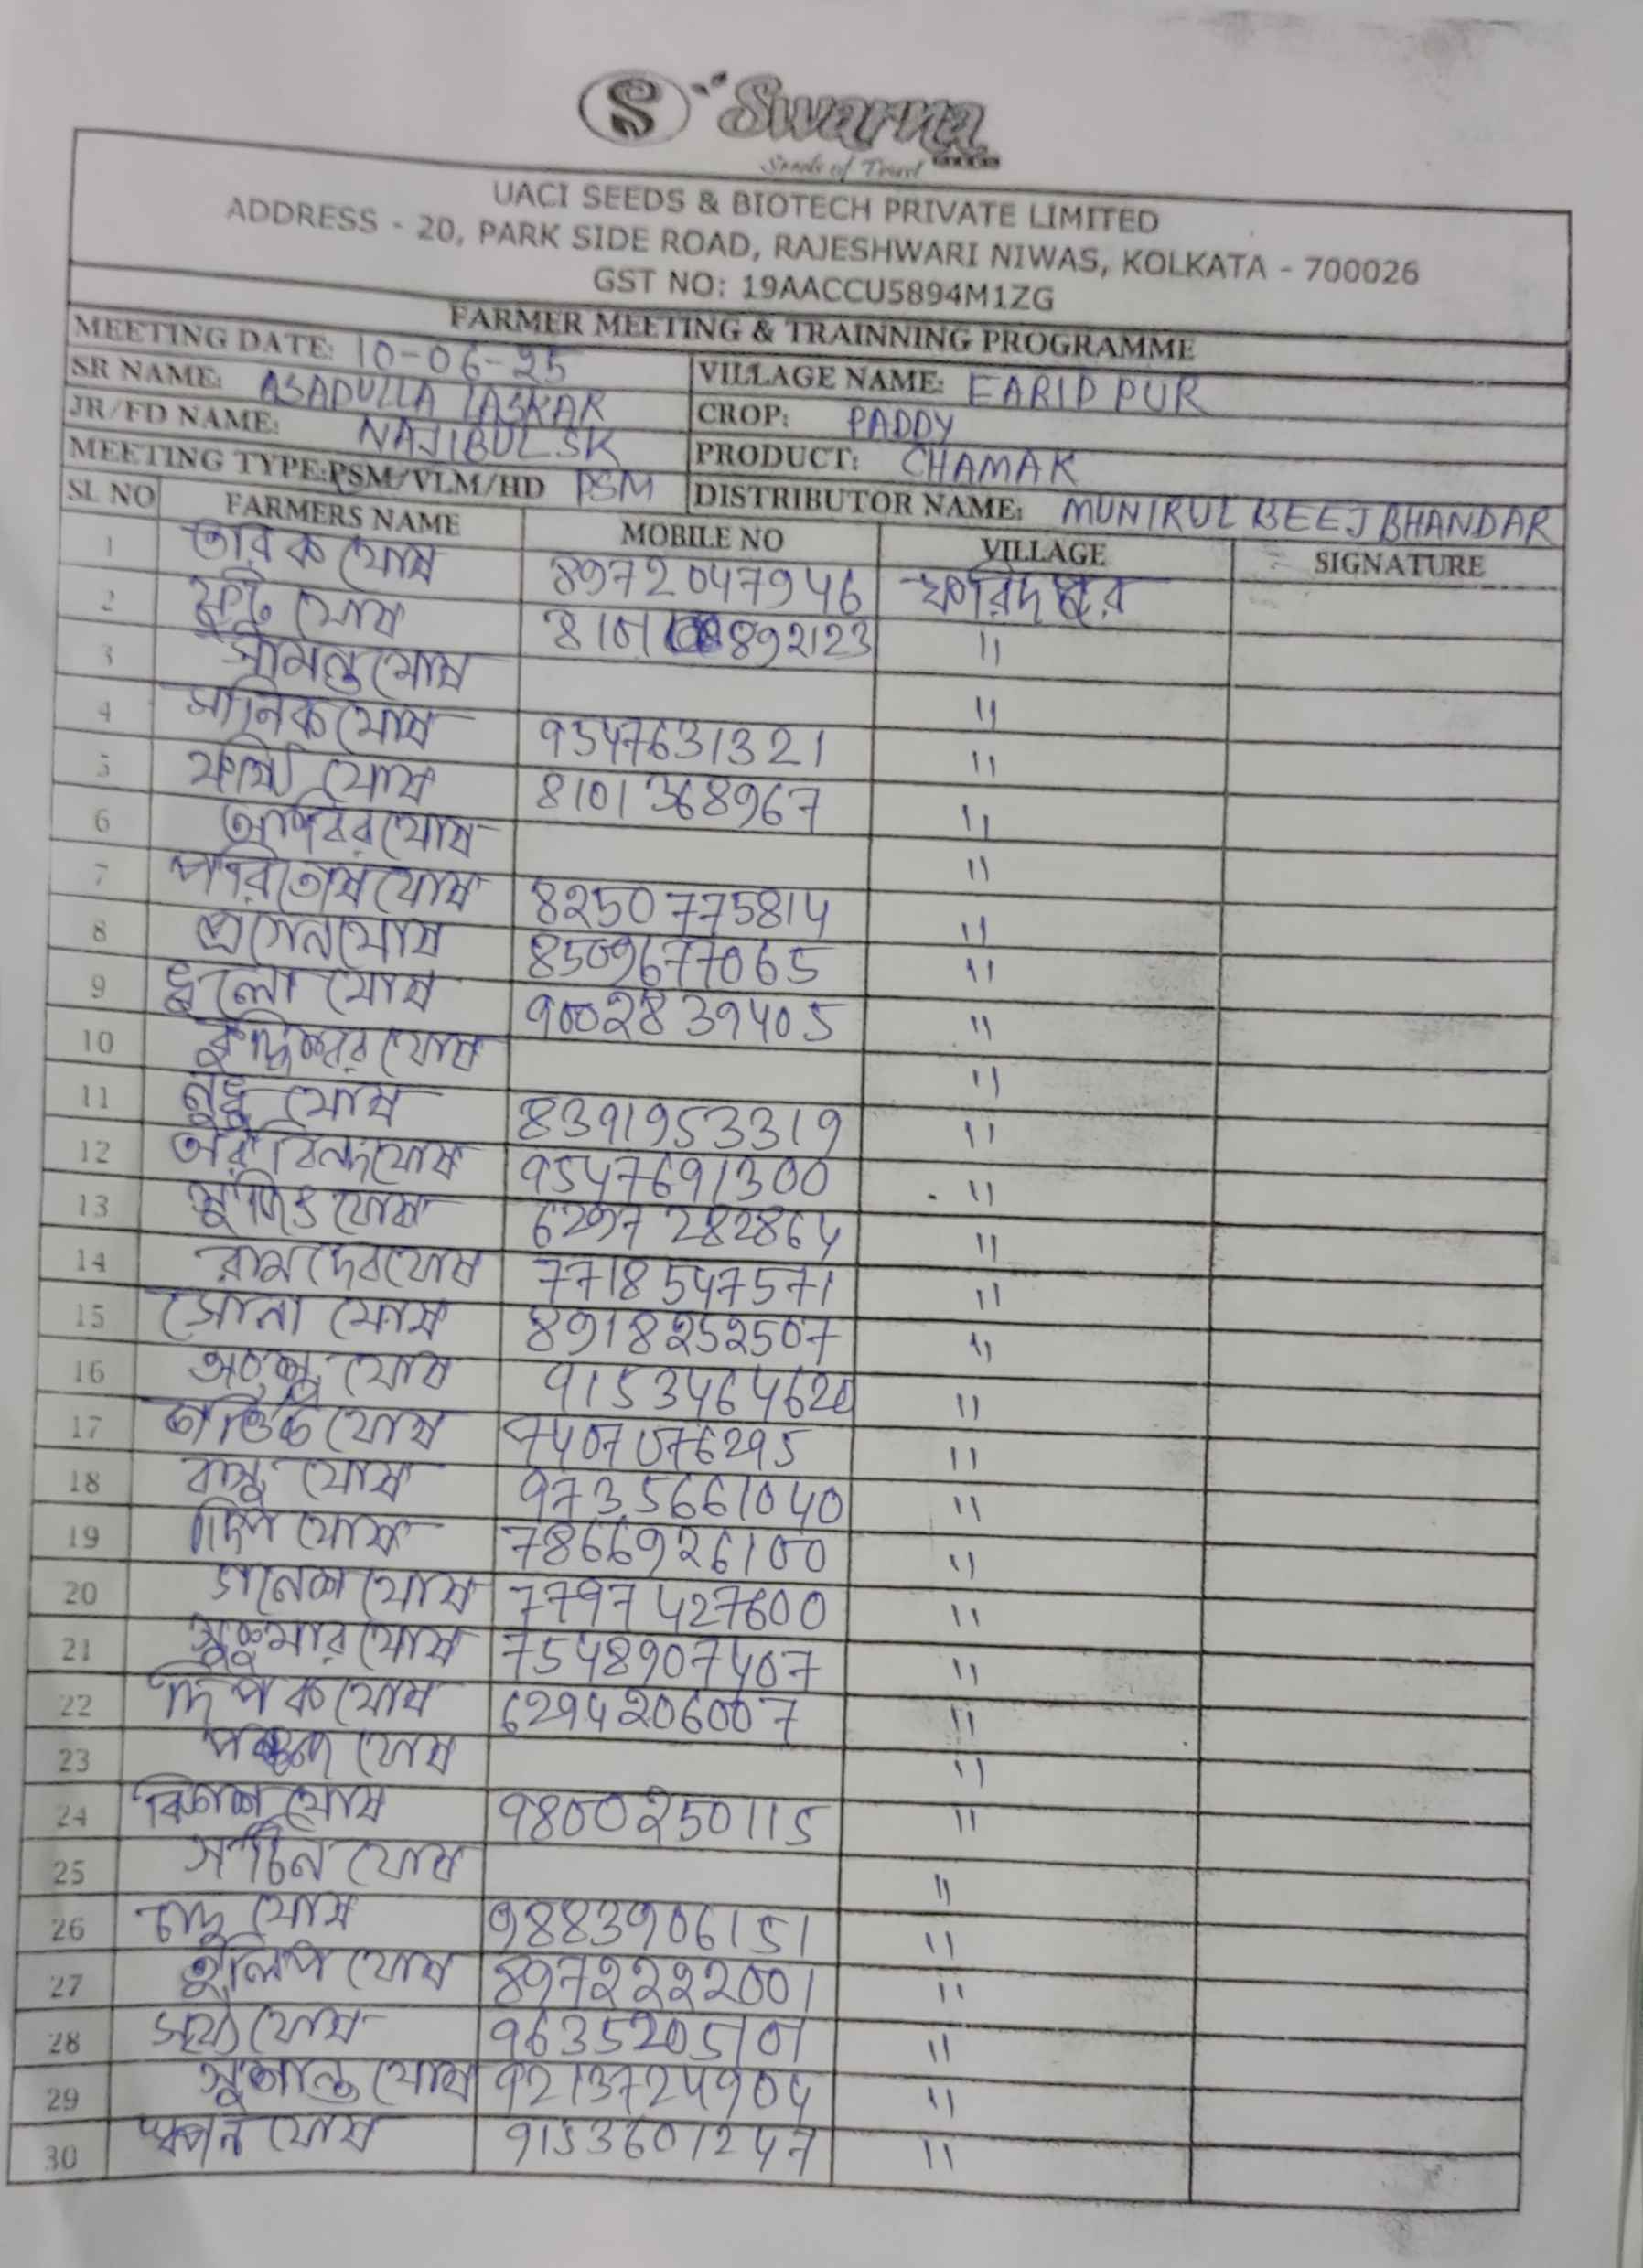 S Swarna
Seeds of Trust
UACI SEEDS & BIOTECH PRIVATE LIMITED
ADDRESS - 20, PARK SIDE ROAD, RAJESHWARI NIWAS, KOLKATA - 700026
GST NO: 19AACCU5894M1ZG
FARMER MEETING & TRAINNING PROGRAMME
MEETING DATE: 10-06-25 VILLAGE NAME: FARIDPUR
SR NAME: ASADULLA LASKAR CROP: PADDY
JR/FD NAME: NAJIBUL SK PRODUCT: CHAMAK
MEETING TYPE:PSM/VLM/HD PSM DISTRIBUTOR NAME: MUNIRUL BEEJ BHANDAR
SL NO FARMERS NAME MOBILE NO VILLAGE SIGNATURE
1 তারক ঘোষ 8972047946 ফরিদপুর
2 ফুটু ঘোষ 8101892123 "
3 সীমন্ত ঘোষ "
4 মানিক ঘোষ 9547631321 "
5 ষষ্ঠি ঘোষ 8101368967 "
6 ঘোষ "
7 পরিতোষ ঘোষ 8250775814 "
8 ঘোষ 8509677065 "
9 ধুলো ঘোষ 9002839405 "
10 ঘোষ "
11 বুদ্ধু ঘোষ 8391953319 "
12 অরবিন্দ ঘোষ 9547691300 "
13 ঘোষ 6297282864 "
14 রামদেব ঘোষ 7718547571 "
15 সোনা ঘোষ 8918252507 "
16 ঘোষ 9153464620 "
17 ঘোষ 7407076295 "
18 বাসু ঘোষ 9735661040 "
19 দিপ ঘোষ 7866926100 "
20 গনেশ ঘোষ 7797427600 "
21 সুকুমার ঘোষ 7548907407 "
22 দিপক ঘোষ 6294206007 "
23 ঘোষ "
24 বিকাশ ঘোষ 9800250115 "
25 সচিন ঘোষ "
26 চাদু ঘোষ 9883906151 "
27 ঘোষ 8972222001 "
28 সূর্য ঘোষ 9635205101 "
29 সুশান্ত ঘোষ 9213724904 "
30 স্বপন ঘোষ 9153601247 "